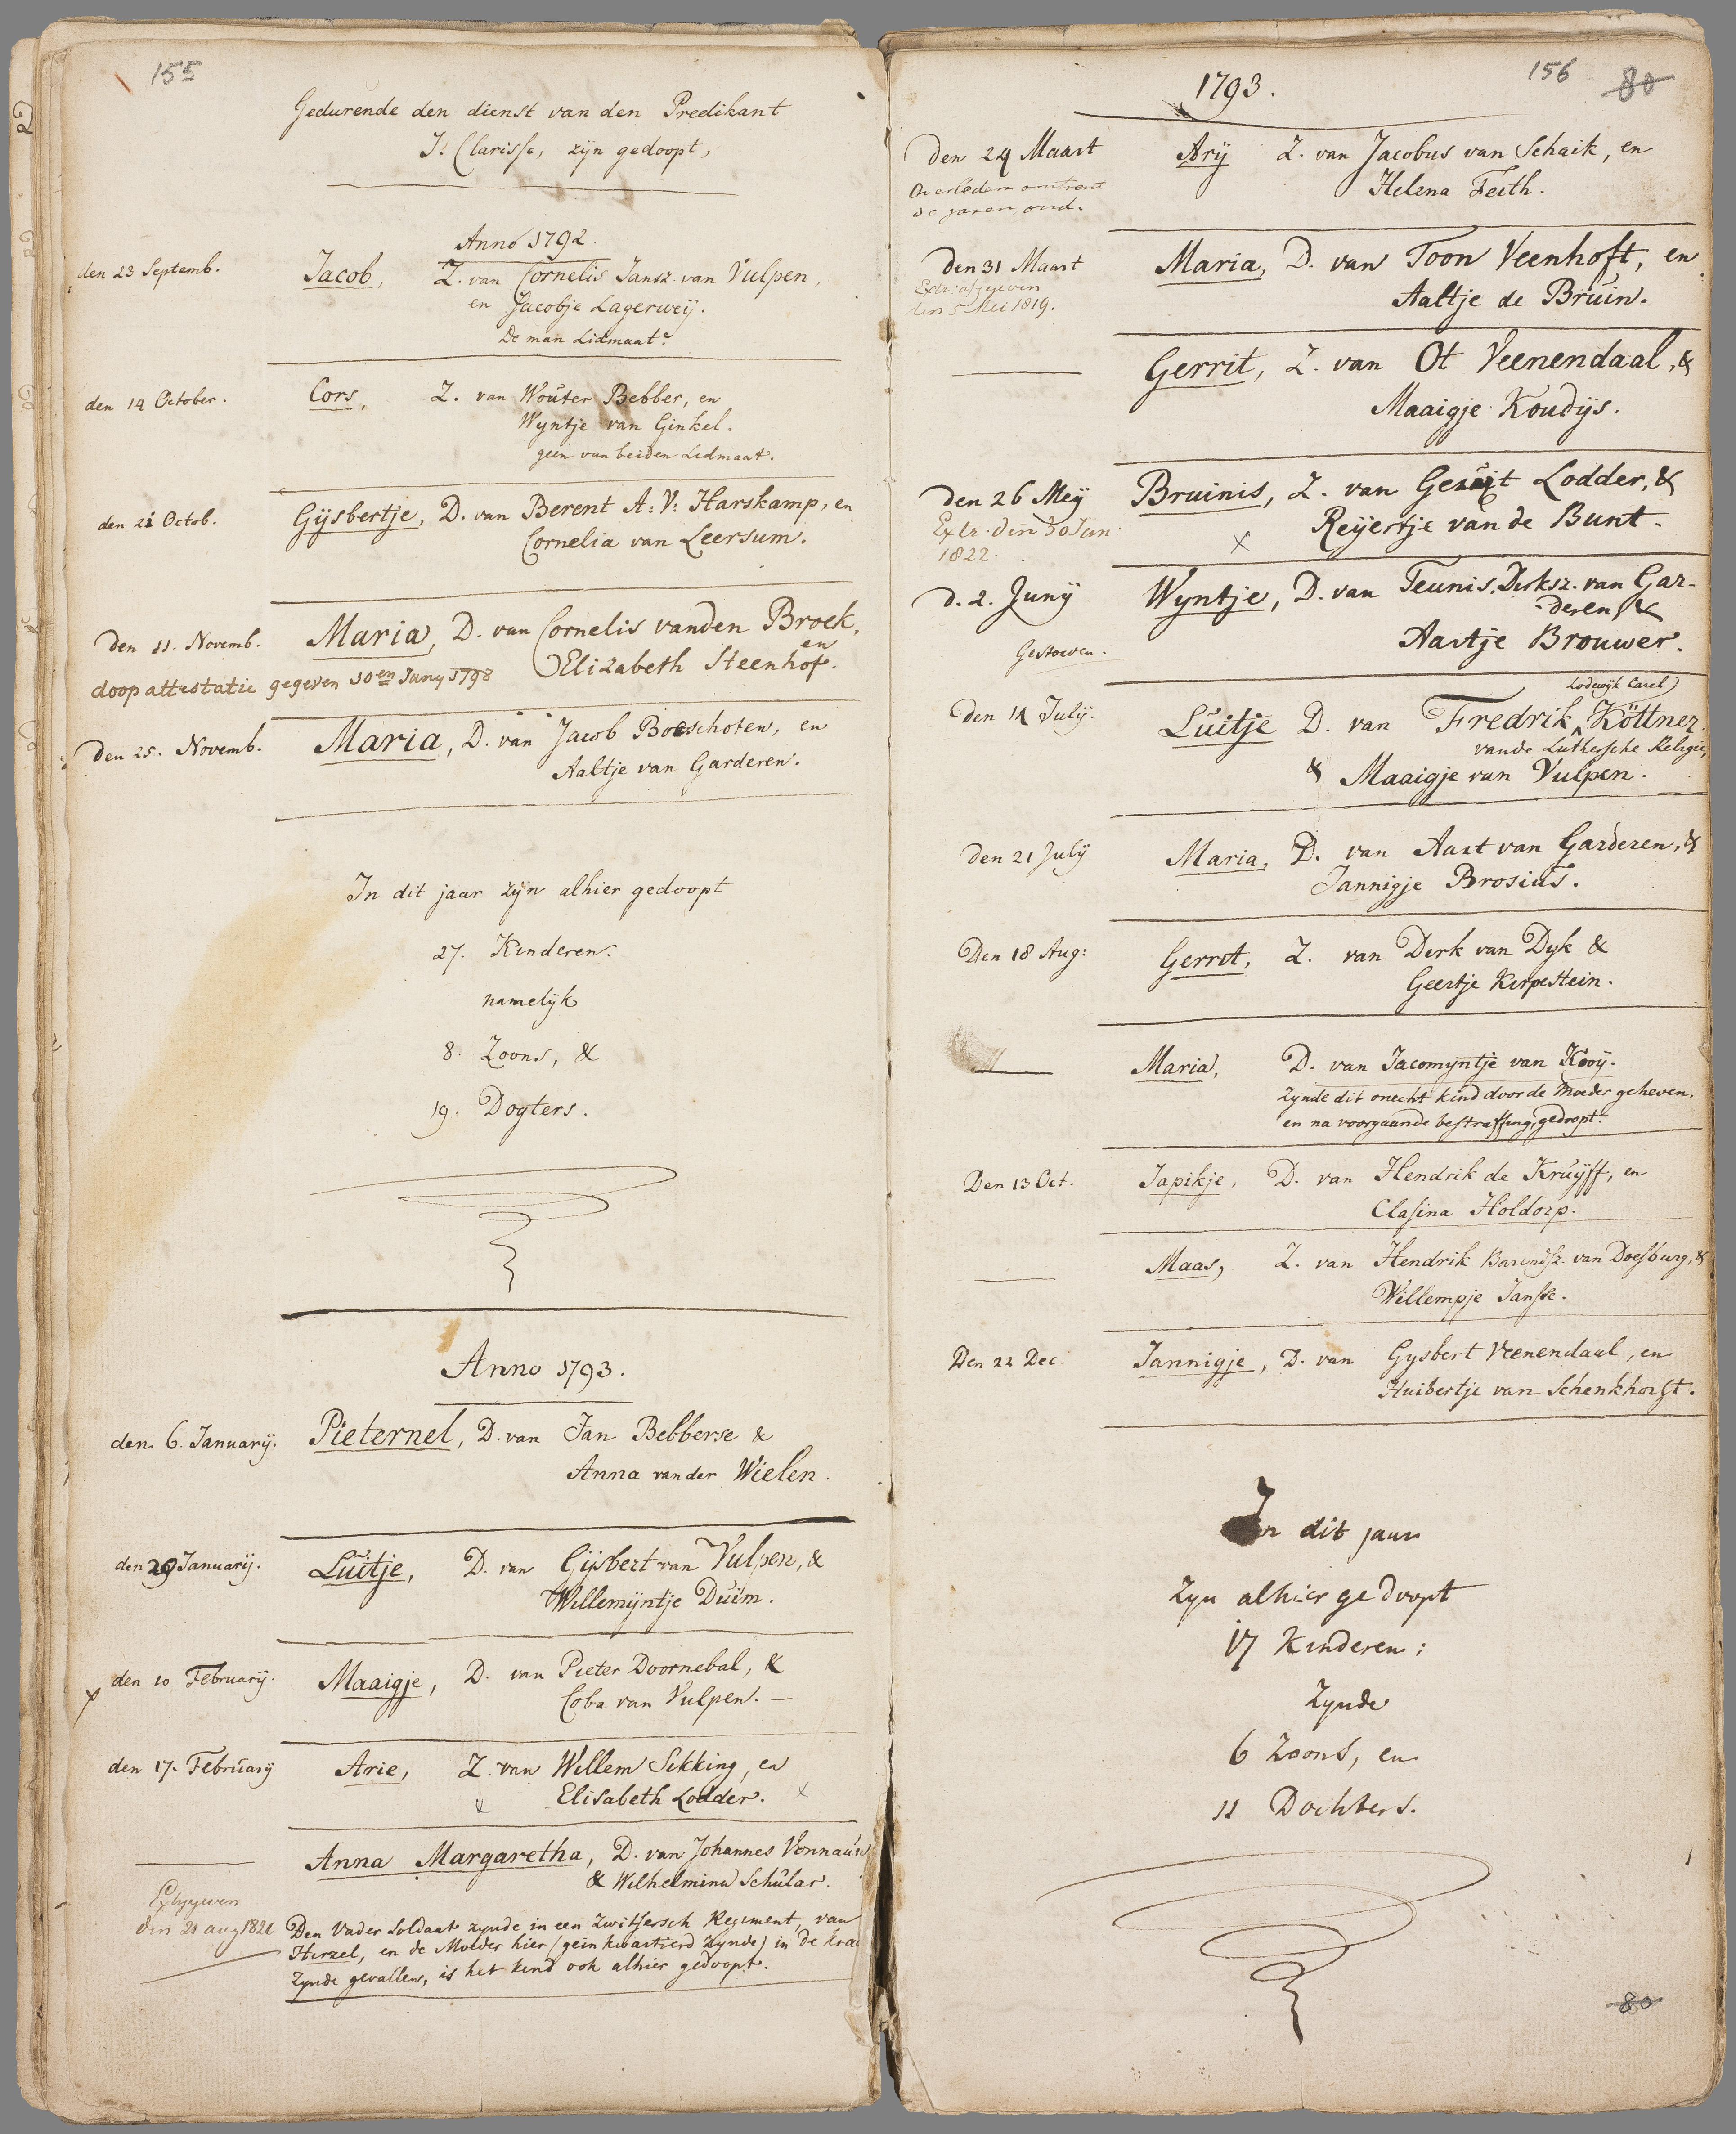 155
Gedurende den dienst van den Predikant
J. Clarisse, zijn gedoopt,
Anno 1792.
den 23 Septemb. Jacob, Z. van Cornelis Jansz. van Vulpen,
en Jacobje Lagerweij.
De man Lidmaat.
den 14 October. Cors, Z. van Wouter Bebber, en
Wyntje van Ginkel.
geen van beiden Lidmaat.
den 21 Octob. Gijsbertje, D. van Berent A: V: Harskamp, en
Cornelia van Leersum.
Den 11. Novemb. Maria, D. van Cornelis vanden Broek,
en
Elizabeth Steenhof.
doop attestatie gegeven 10en Juny 1798
Den 25. Novemb. Maria, D. van Jacob Boeschoten, en
Aaltje van Garderen.
In dit jaar zijn alhier gedoopt
27. Kinderen.
namelijk
8. Zoons, &
19. Dogters.
Anno 1793.
den 6. Januarij. Pieternel, D. van Jan Bebberse &
Anna vander Wielen.
den 20 Januarij. Luitje, D. van Gijsbert van Vulpen, &
Willemijntje Duim.
x den 10 Februarij. Maaigje, D. van Pieter Doornebal, &
Coba van Vulpen. —
den 17. Februarij Arie, Z. van Willem Sikking, en
x Elisabeth Lodder. x
Anna Margaretha, D. van Johannes Vonnauw
& Wilhelmina Schular.
den 21 aug 1821
Den Vader Soldaat zynde in een Zwitsersch Regiment, van
Hirzel, en de Moeder hier (gein kwartierd zynde) in de kra
zynde gevallen, is het kind ook alhier gedoopt.
156 80
1793.
Den 24 Maart Arij Z. van Jacobus van Schaik, en
Helena Feith.
Overleden omtrent
jaren oud.
Den 31 Maart Maria, D. van Toon Veenhoft, en
Extr: afgegeven
den 5 Mei 1819.
Aaltje de Bruin.
Gerrit, Z. van Ot Veenendaal, &
Maaigje Koudijs.
Den 26 Meij Bruinis, Z. van Gerrit Lodder, &
Extr. den 30 Jan:
1822.
x Reijertje van de Bunt.
D. 2. Junij Wyntje, D. van Teunis Dirksz. van Gar-
deren, &
Gestorven. Aartje Brouwer.
Lodewijk Carel
Den 14 Julij. Luitje D. van Fredrik Köttner
vande Luthersche Religie,
& Maaigje van Vulpen.
Den 21 Julij Maria, D. van Aart van Garderen, &
Jannigje Brosius.
Den 18 Aug: Gerrit, Z. van Dirk van Dyk &
Geertje Kerpestein.
Maria, D. van Jacomyntje van Kooij.
Zynde dit onecht kind door de Moeder geheven.
en na voorgaande bestraffing, gedoopt.
Den 13 Oct. Japikje, D. van Hendrik de Kruijff, en
Clasina Holdorp.
Maas, Z. van Hendrik Barendsz. van Doesburg, &
Willempje Janse.
Den 22 Dec. Jannigje, D. van Gysbert Veenendaal, en
Huibertje van Schenkhorst.
In dit jaar
Zyn alhier gedoopt
17 Kinderen;
Zynde
6 Zoons, en
11 Dochters.
80